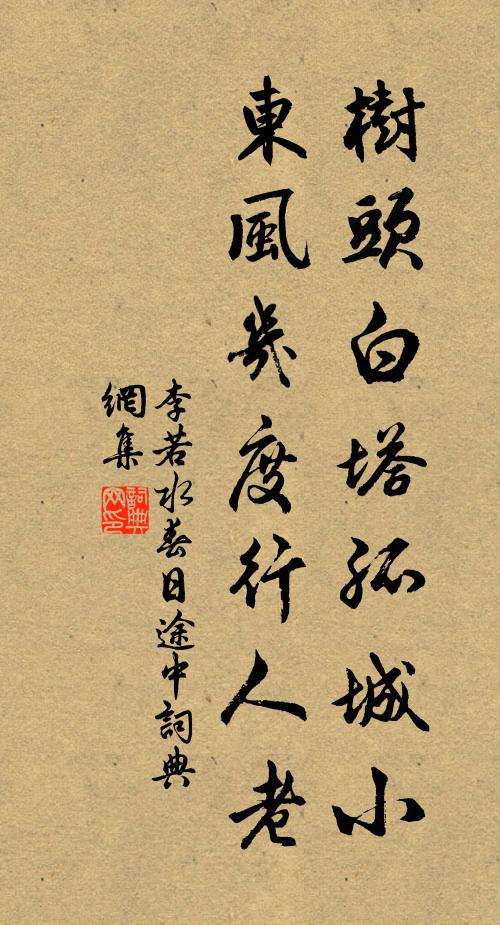 樹頭白塔孤城小
東風幾度行人老
李若水春日途中詞典
網集
詞典
网印